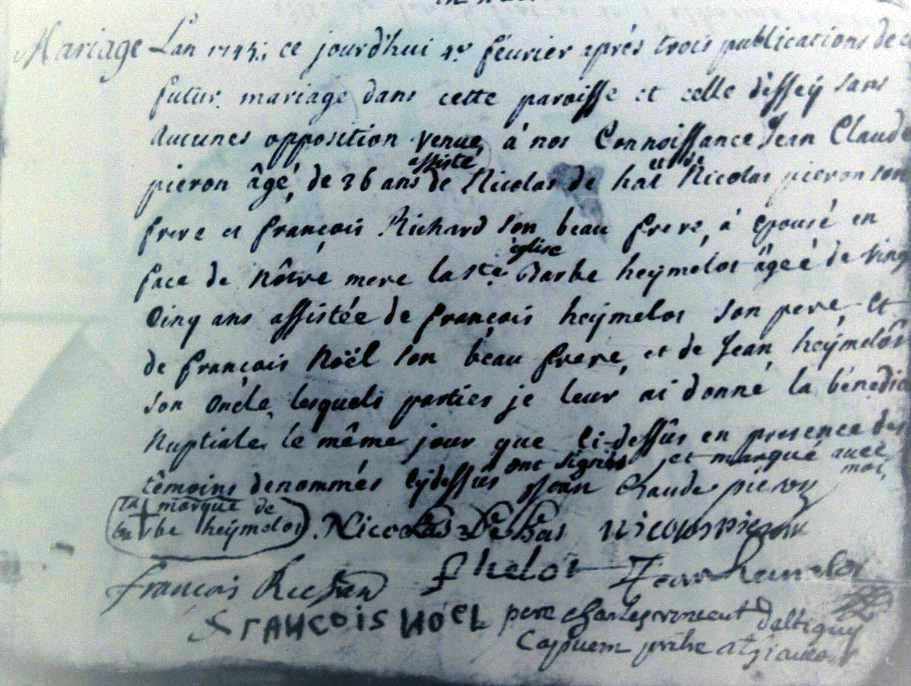 Mariage L'an 1743; ce jourd'hui 4e février après trois publications de
futur mariage dans cette paroisse et celle d'essey sans
aucunes opposition venue à nos Connoissance Jean Claude
pieron âgé de 26 ans assisté de Nicolas de hat et de Nicolas pieron son
frere et françois Richard son beau frere, à épousé en
face de nôtre mere la ste église Barbe heÿmelot âgée de Ving
Cinq ans assistée de françois heijmelot son pere, Et
de françois Noël son beau frere, et de Jean heÿmelot
son Oncle, lesquels parties je leur ai donné la bénedic
Nuptiale, le même jour que Ci-dessûs en presence des
têmoins denommés Cÿdessûs ont signés et marqué avec moi,
Jean Claude pieron
la marque de
barbe heijmelot Nicolas De Hat nicolas pieron
françois Richard Jean heimelot
FRANCOIS NOËL pere
Capucin